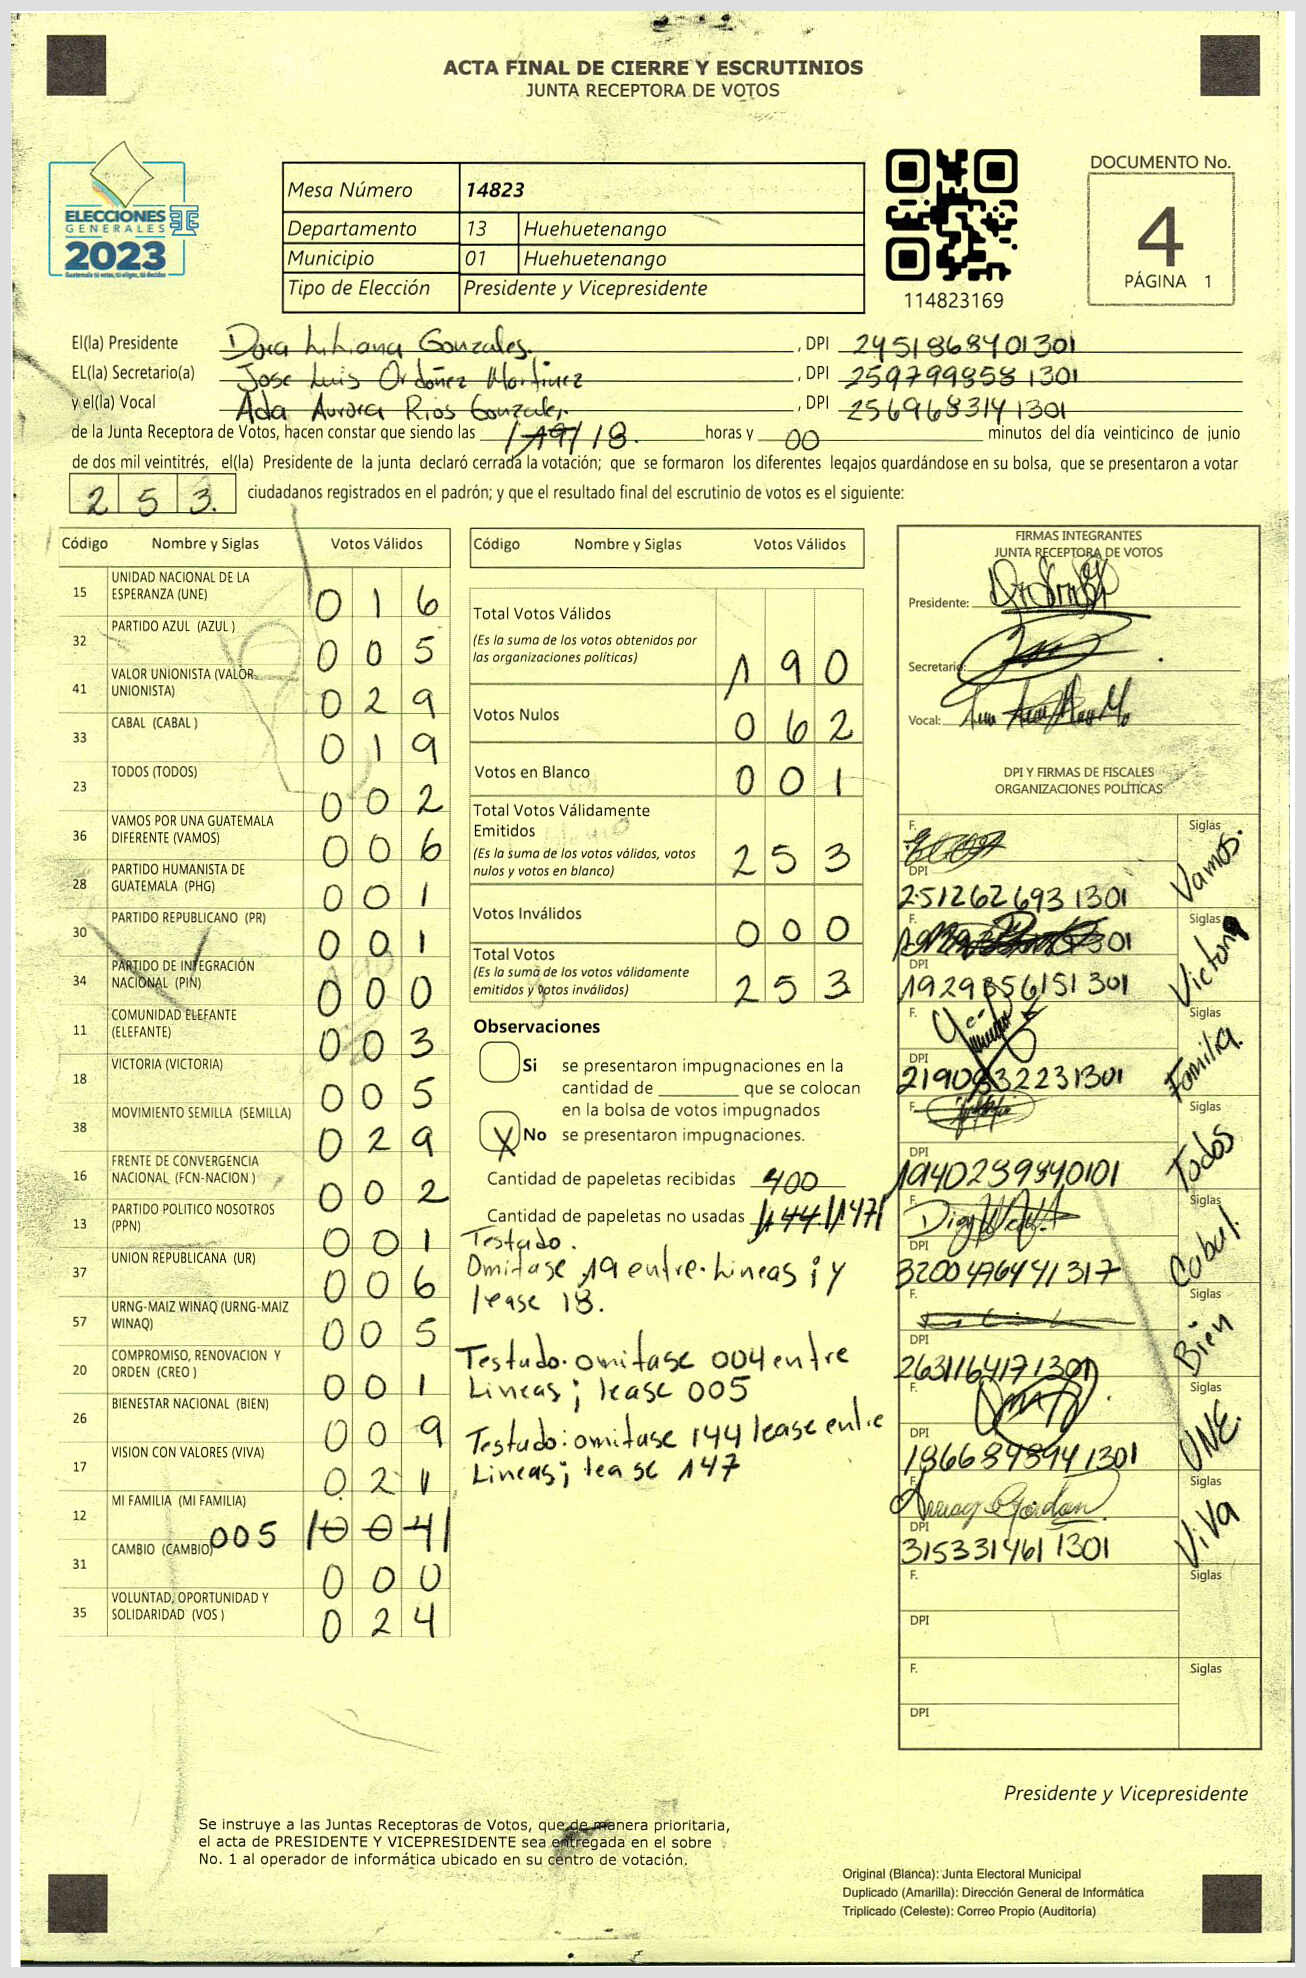 ACTA FINAL DE CIERRE Y ESCRUTINIOS
JUNTA RECEPTORA DE VOTOS
ELECCIONES
GENERALES
2023
Guatemala tú votas, tú eliges, tú decides
Mesa Número 14823
Departamento 13 Huehuetenango
Municipio 01 Huehuetenango
Tipo de Elección Presidente y Vicepresidente
114823169
DOCUMENTO No.
4
PÁGINA 1
El(la) Presidente Dora Liliana Gonzales. , DPI 2451868401301
EL(la) Secretario(a) Jose Luis Ordoñez Martinez , DPI 2597998581301
y el(la) Vocal Ada Aurora Rios Gonzalez. , DPI 2569683141301
de la Junta Receptora de Votos, hacen constar que siendo las /19/ 18. horas y 00 minutos del día veinticinco de junio
de dos mil veintitrés, el(la) Presidente de la junta declaró cerrada la votación; que se formaron los diferentes legajos guardándose en su bolsa, que se presentaron a votar
253. ciudadanos registrados en el padrón; y que el resultado final del escrutinio de votos es el siguiente:
Código Nombre y Siglas Votos Válidos
15 UNIDAD NACIONAL DE LA
ESPERANZA (UNE) 016
32 PARTIDO AZUL (AZUL ) 005
41 VALOR UNIONISTA (VALOR
UNIONISTA) 029
33 CABAL (CABAL ) 019
23 TODOS (TODOS) 002
36 VAMOS POR UNA GUATEMALA
DIFERENTE (VAMOS) 006
28 PARTIDO HUMANISTA DE
GUATEMALA (PHG) 001
30 PARTIDO REPUBLICANO (PR) 001
34 PARTIDO DE INTEGRACIÓN
NACIONAL (PIN) 000
11 COMUNIDAD ELEFANTE
(ELEFANTE) 003
18 VICTORIA (VICTORIA) 005
38 MOVIMIENTO SEMILLA (SEMILLA) 029
16 FRENTE DE CONVERGENCIA
NACIONAL (FCN-NACION ) 002
13 PARTIDO POLITICO NOSOTROS
(PPN) 001
37 UNION REPUBLICANA (UR) 006
57 URNG-MAIZ WINAQ (URNG-MAIZ
WINAQ) 005
20 COMPROMISO, RENOVACION Y
ORDEN (CREO ) 001
26 BIENESTAR NACIONAL (BIEN) 009
17 VISION CON VALORES (VIVA) 021
12 MI FAMILIA (MI FAMILIA) 005 /004/
31 CAMBIO (CAMBIO) 000
35 VOLUNTAD, OPORTUNIDAD Y
SOLIDARIDAD (VOS ) 024
Código Nombre y Siglas Votos Válidos
Total Votos Válidos
(Es la suma de los votos obtenidos por
las organizaciones políticas) 190
Votos Nulos 062
Votos en Blanco 001
Total Votos Válidamente
Emitidos
(Es la suma de los votos válidos, votos
nulos y votos en blanco) 253
Votos Inválidos 000
Total Votos
(Es la suma de los votos válidamente
emitidos y votos inválidos) 253
Observaciones
Si se presentaron impugnaciones en la
cantidad de ________ que se colocan
en la bolsa de votos impugnados
X No se presentaron impugnaciones.
Cantidad de papeletas recibidas 400
Cantidad de papeletas no usadas /144/ /147/
Testado.
Omitase 19 entre. Lineas ; y
lease 18.
Testudo. omitase 004 entre
Lineas ; lease 005
Testudo: omitase 144 lease entre
Lineas; lease 147
FIRMAS INTEGRANTES
JUNTA RECEPTORA DE VOTOS
Presidente:
Secretario:
Vocal:
DPI Y FIRMAS DE FISCALES
ORGANIZACIONES POLÍTICAS
F. Siglas Vamos.
DPI
2512626931301
F. Siglas Victoria
DPI
1929856151301
F. Siglas Familia.
DPI
2190832231301
F. Siglas Todos
DPI
1940289840101
F. Siglas Cabal.
DPI
3200476441317
F. Siglas Bien
DPI
2631164171301
F. Siglas UNE.
DPI
1866898941301
F. Siglas ViVa
DPI
3153314611301
F. Siglas
DPI
F. Siglas
DPI
Presidente y Vicepresidente
Se instruye a las Juntas Receptoras de Votos, que de manera prioritaria,
el acta de PRESIDENTE Y VICEPRESIDENTE sea entregada en el sobre
No. 1 al operador de informática ubicado en su centro de votación.
Original (Blanca): Junta Electoral Municipal
Duplicado (Amarilla): Dirección General de Informática
Triplicado (Celeste): Correo Propio (Auditoría)